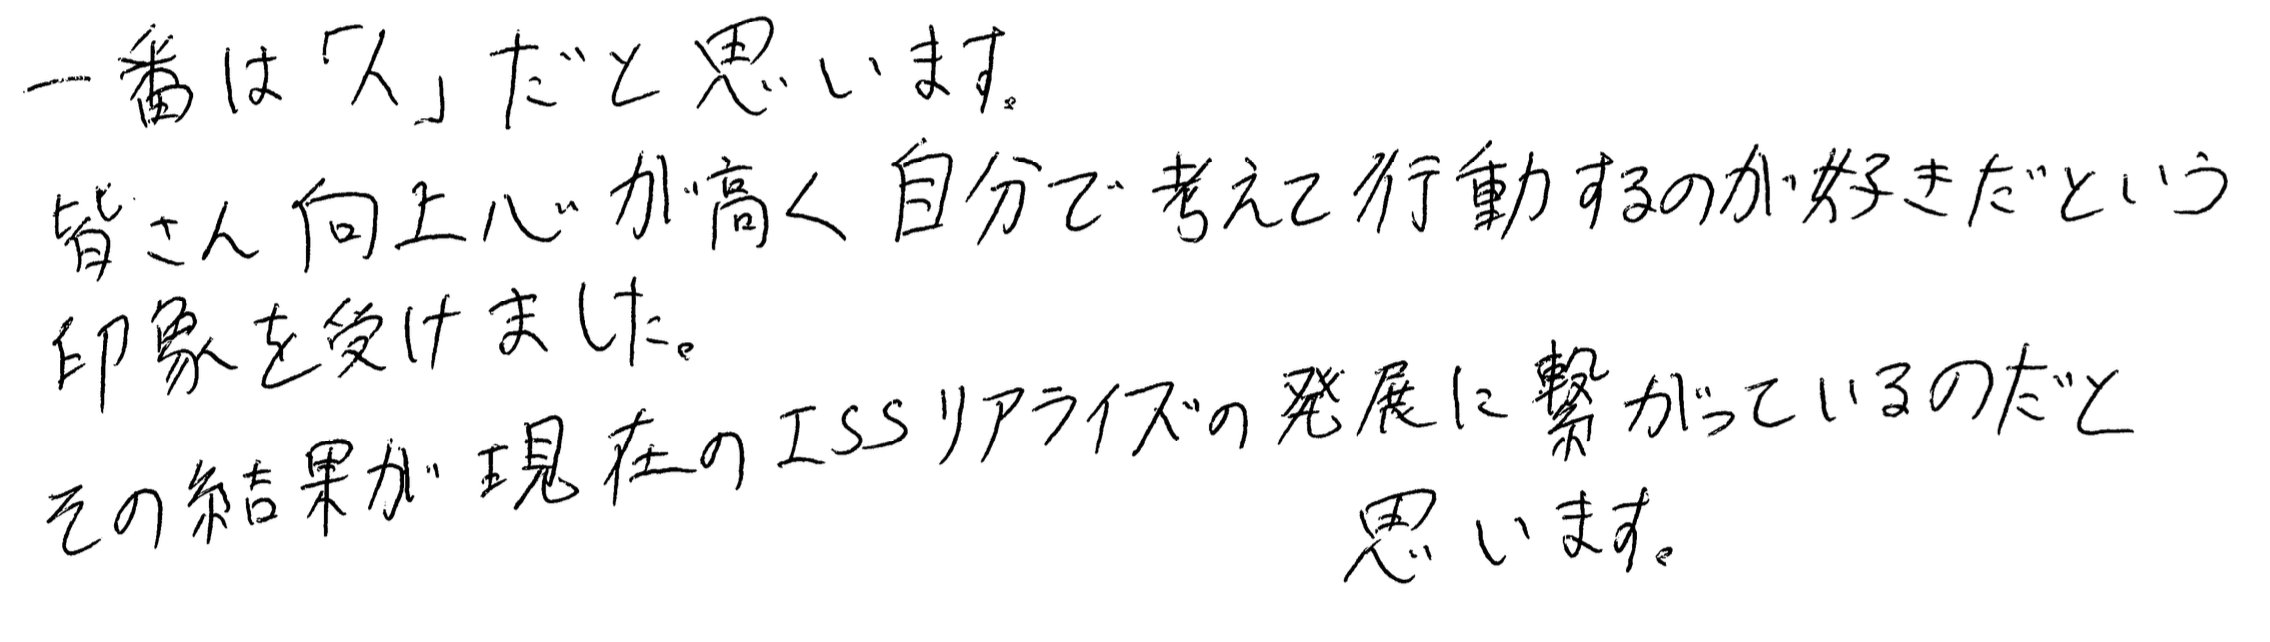 一番は「人」だと思います。
皆さん向上心が高く自分で考えて行動するのが好きだという
印象を受けました。
その結果が現在のISSリアライズの発展に繋がっているのだと
思います。